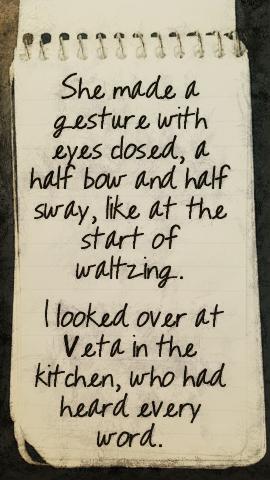 She made a
gesture with
eyes closed, a
half bow and half
sway, like at the
start of
waltzing.
I looked over at
Veta in the
kitchen, who had
heard every
word.